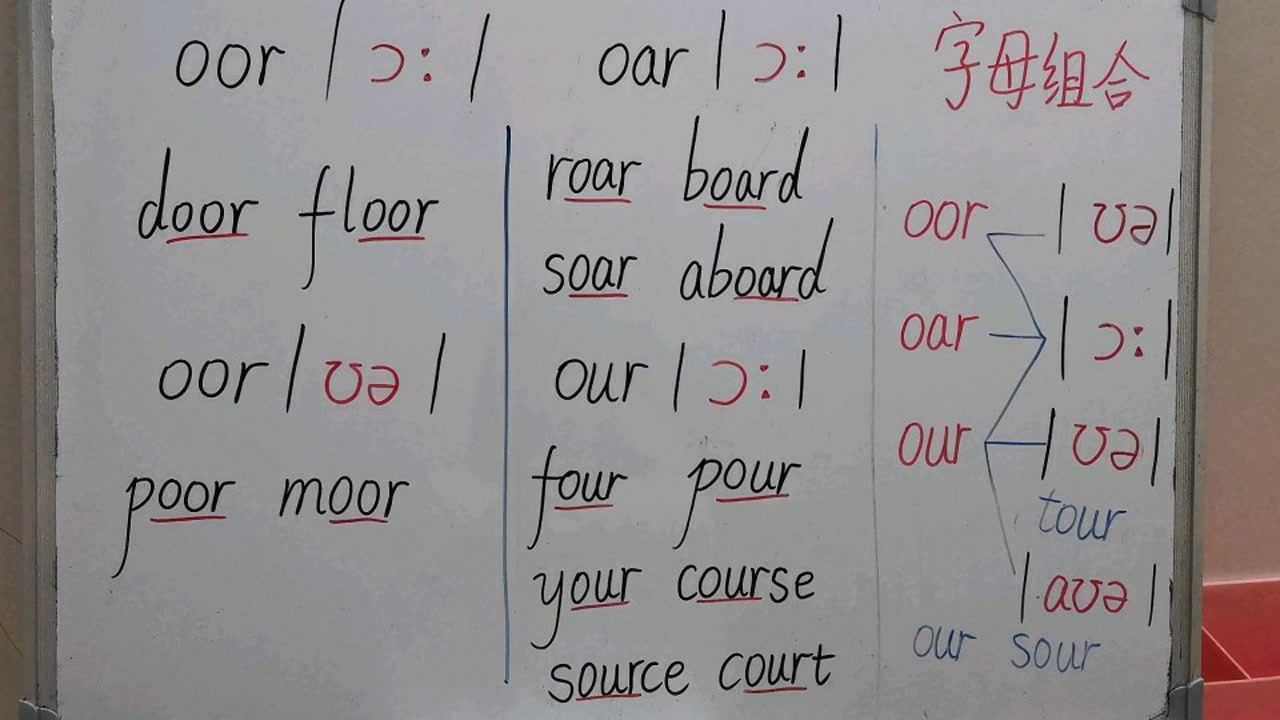 oor /ɔː/
door floor
oor /ʊə/
poor moor
oar /ɔː/
roar board
soar aboard
our /ɔː/
four pour
your course
source court
字母组合
oor /ʊə/
oar /ɔː/
our /ʊə/
tour
/aʊə/
our sour